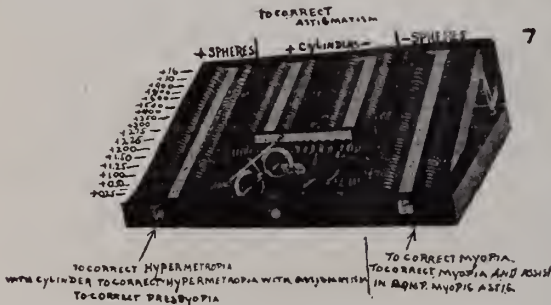 TO CORRECT
ASTIGMATISM
7
+ SPHERES
+ CYLINDERS -
- SPHERES
+16
+10
+9.00
+2.75
+2.25
+2.00
+1.50
+1.25
+1.00
+0.50
+0.25
TO CORRECT HYPERMETROPIA
WITH CYLINDER TO CORRECT HYPERMETROPIA WITH ASTIGMATISM
TO CORRECT PRESBYOPIA
TO CORRECT MYOPIA.
TO CORRECT MYOPIA AND ASSIST
IN COMP. MYOPIC ASTIG.